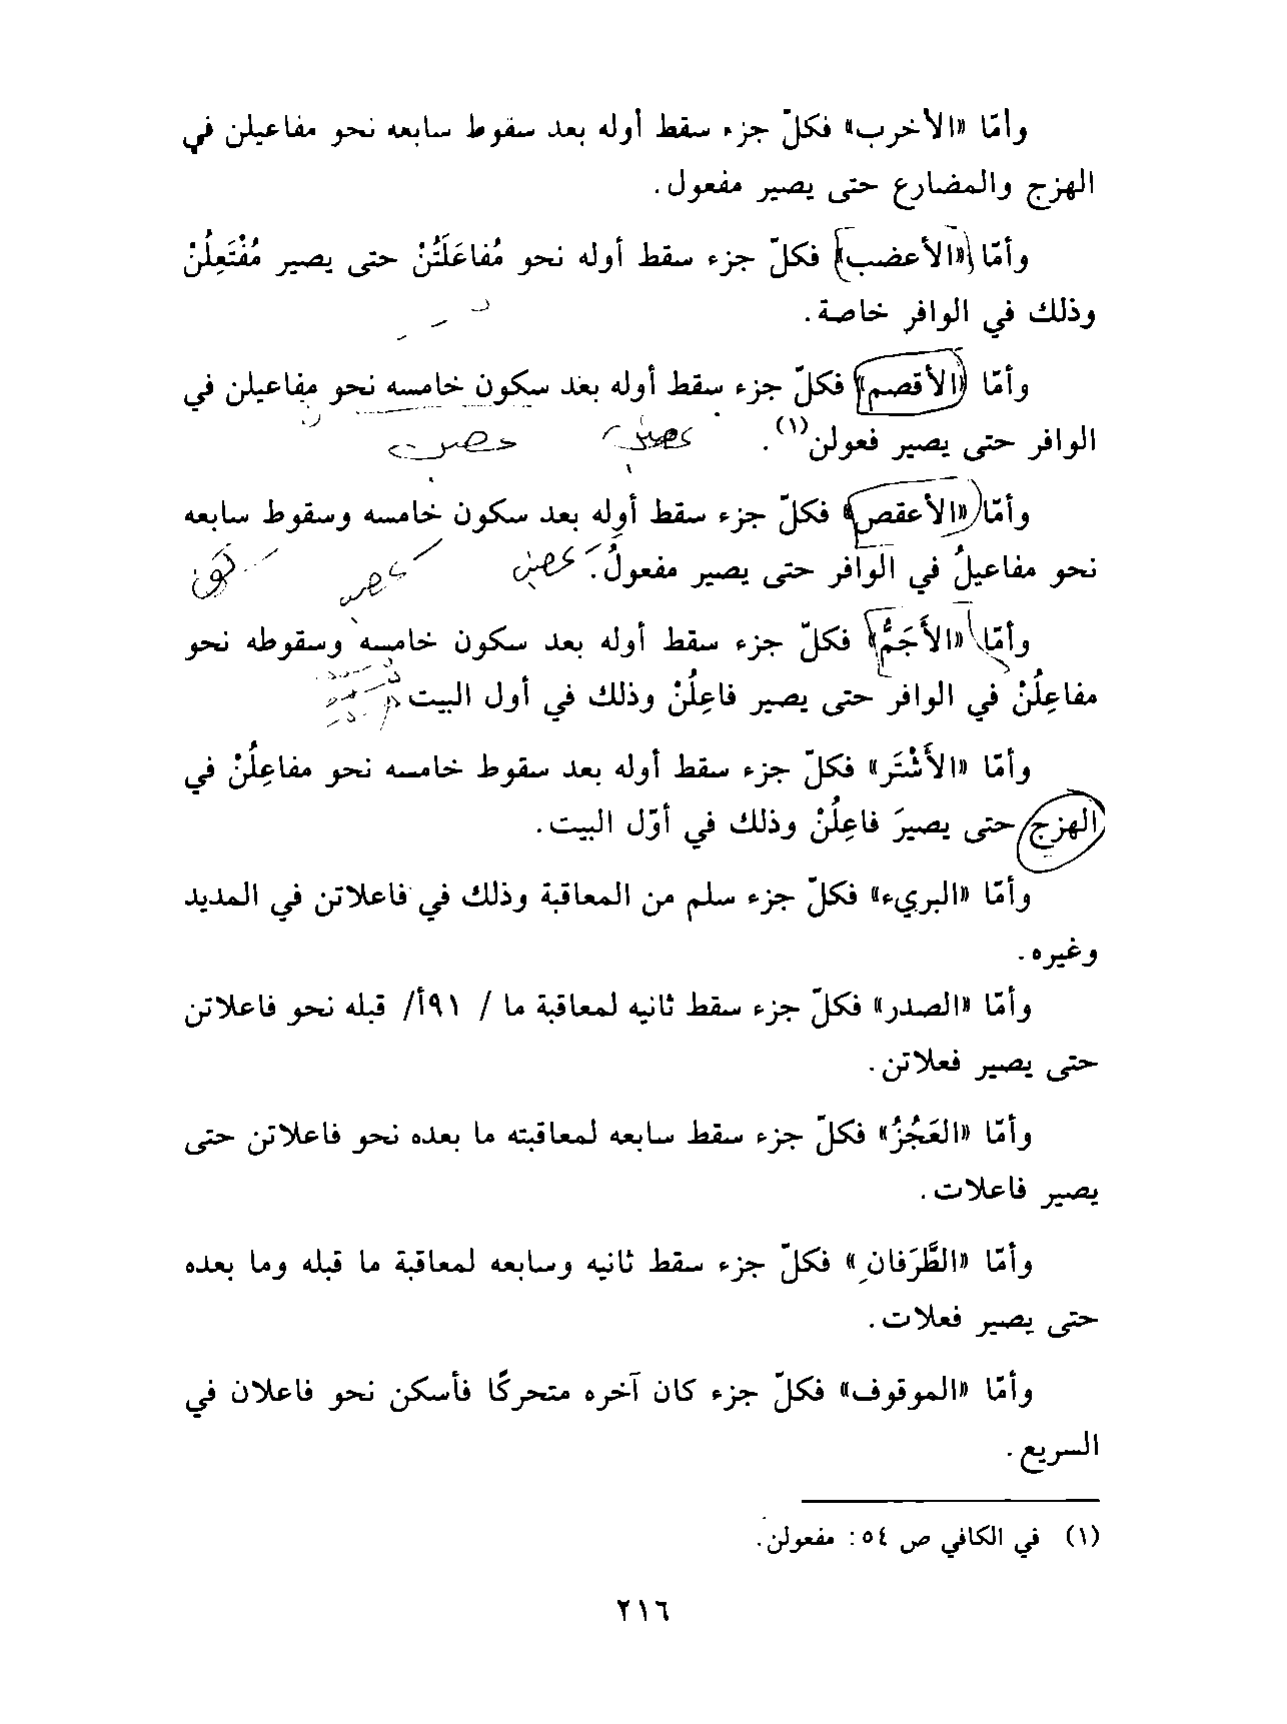 وأمّا «الأخرب» فكلّ جزء سقط أوله بعد سقوط سابعه نحو مفاعيلن في
الهزج والمضارع حتى يصير مفعول.
وأمّا «الأعضب» فكلّ جزء سقط أوله نحو مُفاعَلَتُنْ حتى يصير مُفْتَعِلُنْ
وذلك في الوافر خاصة.
وأمّا «الأقصم» فكلّ جزء سقط أوله بعد سكون خامسه نحو مفاعيلن في
الوافر حتى يصير فعولن(١).
عصب
وأمّا «الأعقص» فكلّ جزء سقط أوله بعد سكون خامسه وسقوط سابعه
نحو مفاعيلُ في الوافر حتى يصير مفعولُ.
وأمّا «الأَجَمُّ» فكلّ جزء سقط أوله بعد سكون خامسه وسقوطه نحو
مفاعِلُنْ في الوافر حتى يصير فاعِلُنْ وذلك في أول البيت
وأمّا «الأَشْتَر» فكلّ جزء سقط أوله بعد سقوط خامسه نحو مفاعِلُنْ في
الهزج حتى يصيرَ فاعِلُنْ وذلك في أوّل البيت.
وأمّا «البريء» فكلّ جزء سلم من المعاقبة وذلك في فاعلاتن في المديد
وغيره.
وأمّا «الصدر» فكلّ جزء سقط ثانيه لمعاقبة ما / ٩١أ/ قبله نحو فاعلاتن
حتى يصير فعلاتن.
وأمّا «العَجُزُ» فكلّ جزء سقط سابعه لمعاقبته ما بعده نحو فاعلاتن حتى
يصير فاعلات.
وأمّا «الطَّرَفانِ» فكلّ جزء سقط ثانيه وسابعه لمعاقبة ما قبله وما بعده
حتى يصير فعلات.
وأمّا «الموقوف» فكلّ جزء كان آخره متحركًا فأسكن نحو فاعلان في
السريع.
(١) في الكافي ص ٥٤: مفعولن.
٢١٦